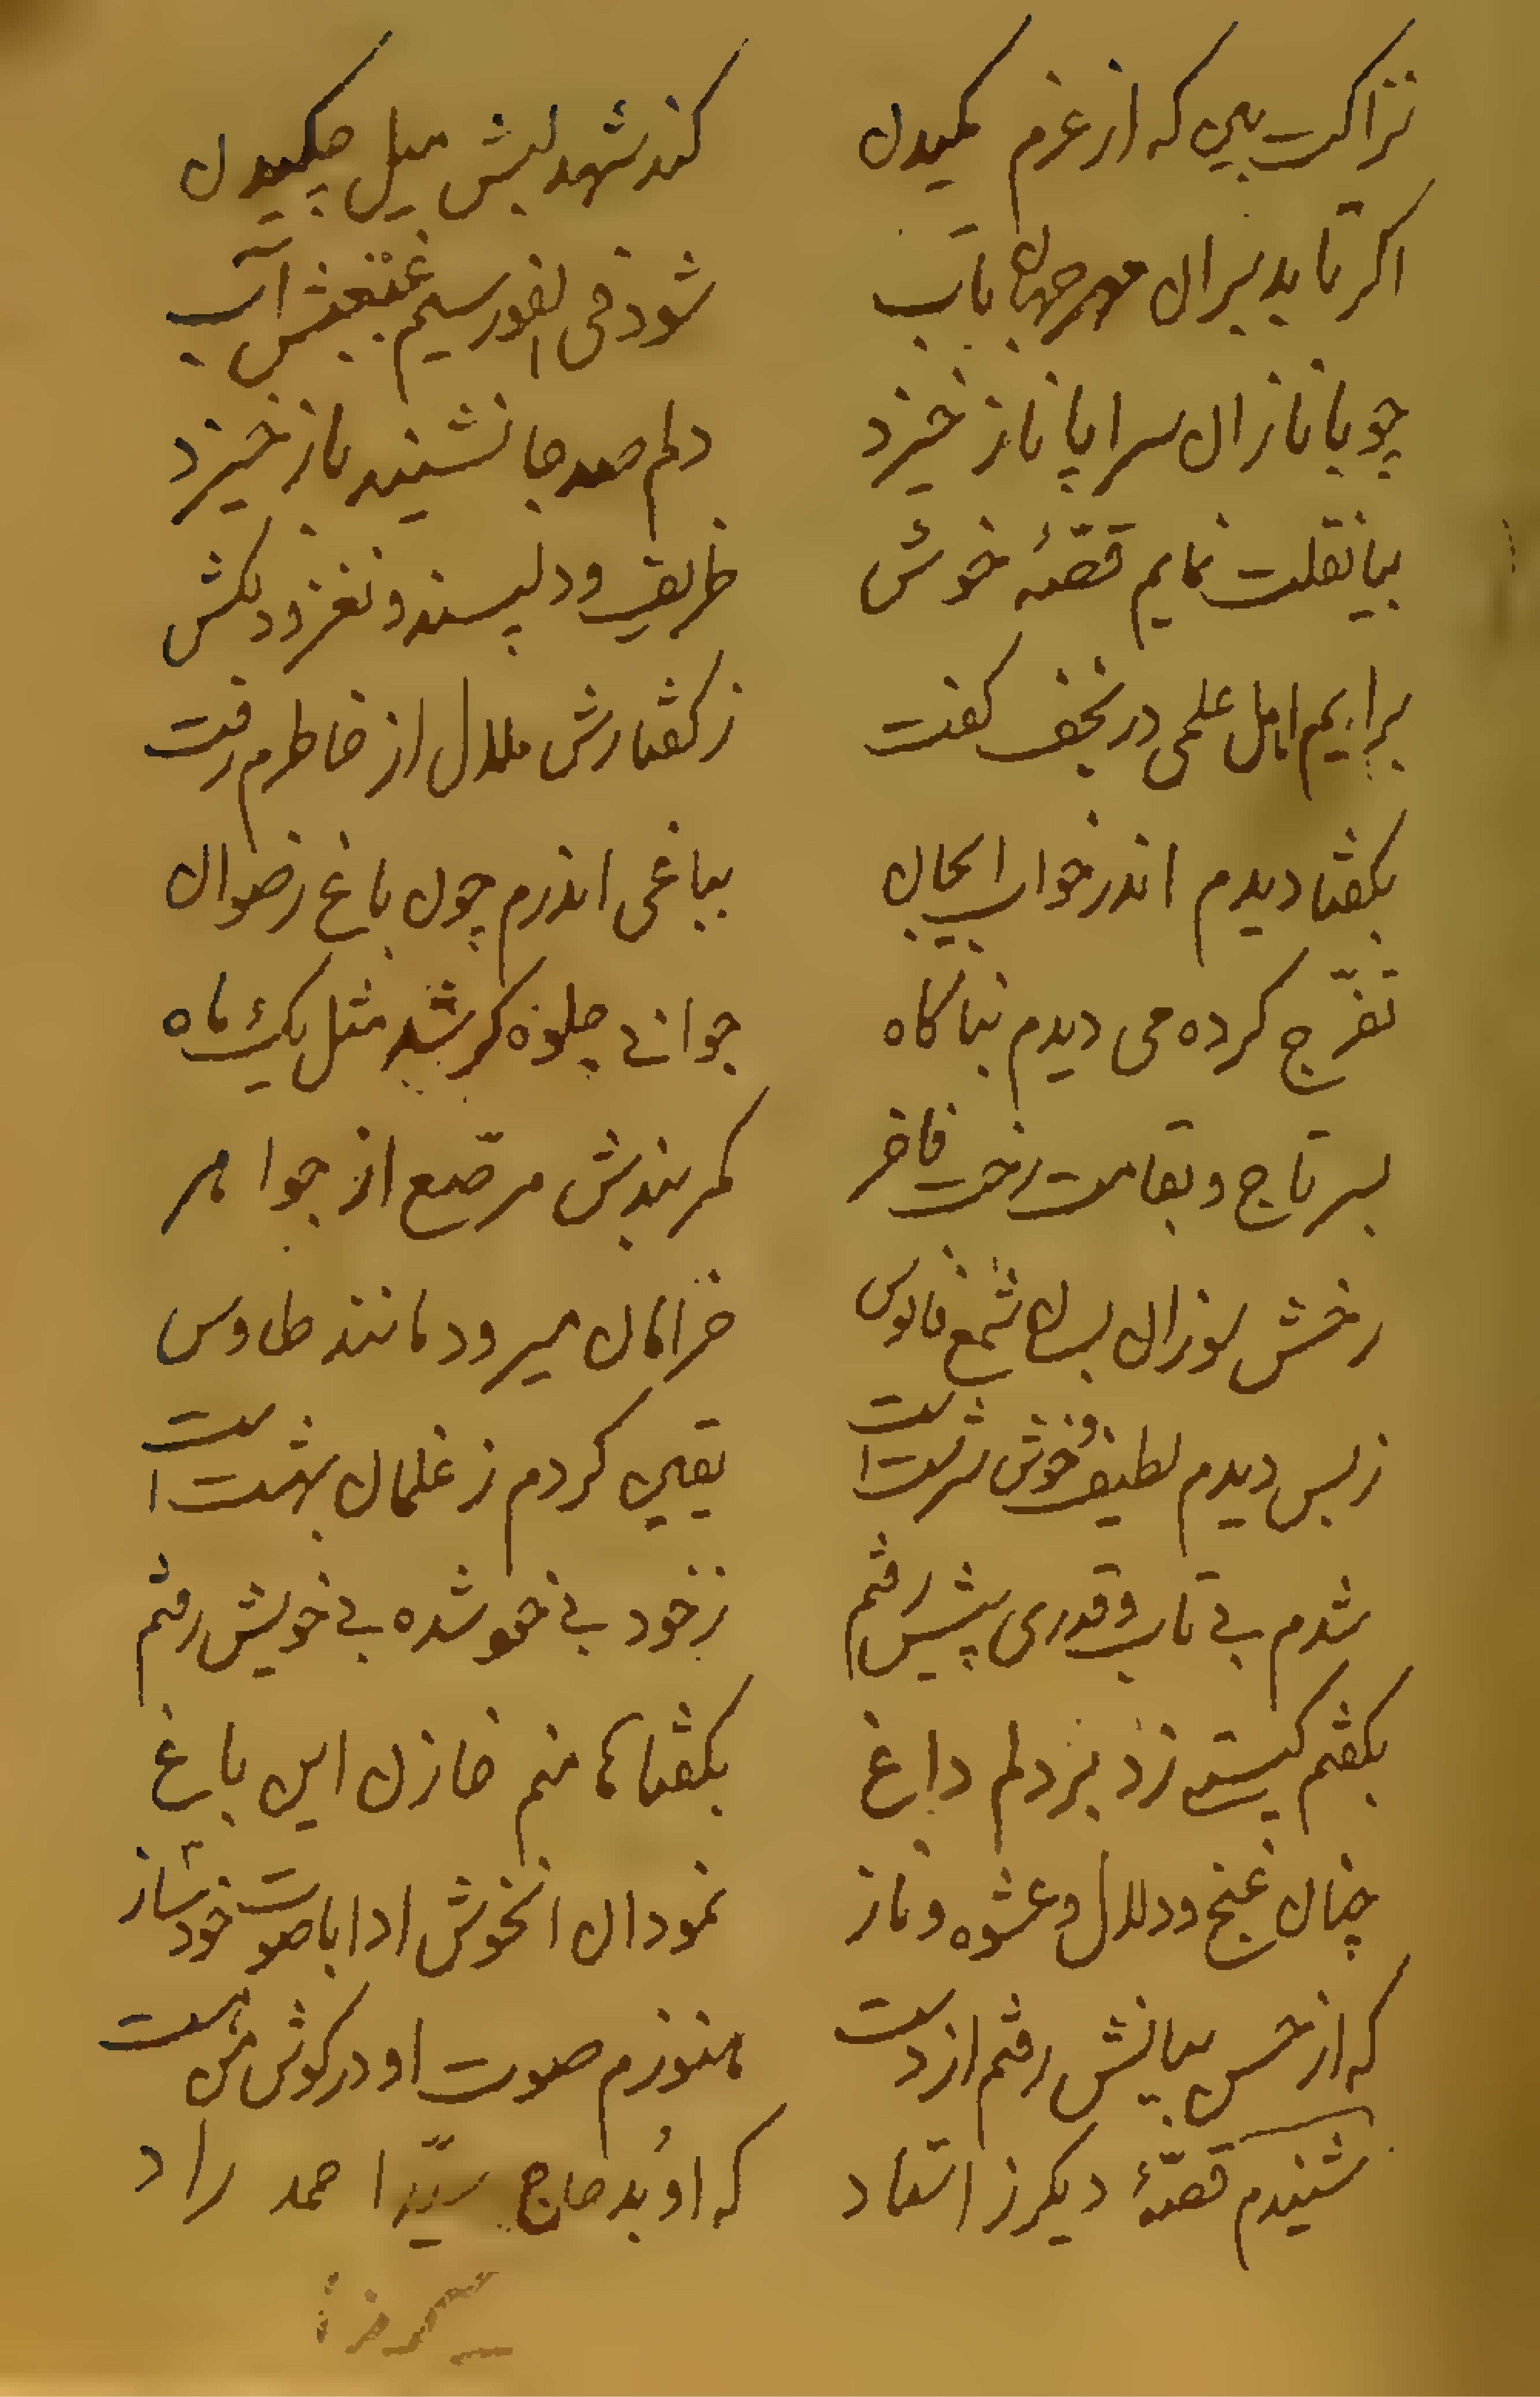 نزاکت بین که از عزم مکیدن کند شهد لبش میل چکیدن
اگر تابد بر آن مهر جهان تاب شود فی الفور سیم غبغبش آب
چو با ناز آن سراپا ناز خیزد دلم صد جا نشیند باز خیزد
بیا نقلت نمایم قصّهٔ خوش ظریف و دلپسند و نغز و دلکش
برایم اهل علمی در نجف گفت ز گفتارش ملال از خاطرم رفت
بگفتا دیدم اندر خواب ایجان بباغی اندرم چون باغ رضوان
تفرّج کرده می دیدم بناگاه جوانی جلوه گر شد مثل یک ماه
بسر تاج و بقامت رخت فاخر کمربندش مرصّع از جواهر
رخش سوزان بسان شمع فانوس خرامان میرود مانند طاوس
ز بس دیدم لطیف و خوش سرشت است یقین کردم ز غلمان بهشت است
شدم بی تاب و قدری پیش رفتم ز خود بی خود شده بی خویش رفتم
بگفتم کیستی زد بر دلم داغ بگفتا ها منم خازن این باغ
چنان غنج و دلال و عشوه و ناز نمود آن خوش ادا با صوت خود ساز
که از حسن بیانش رفتم از دست هنوزم صوت او در گوش من هست
شنیدم قصّهٔ دیگر ز استاد که او بد حاج سیّد احمد راد